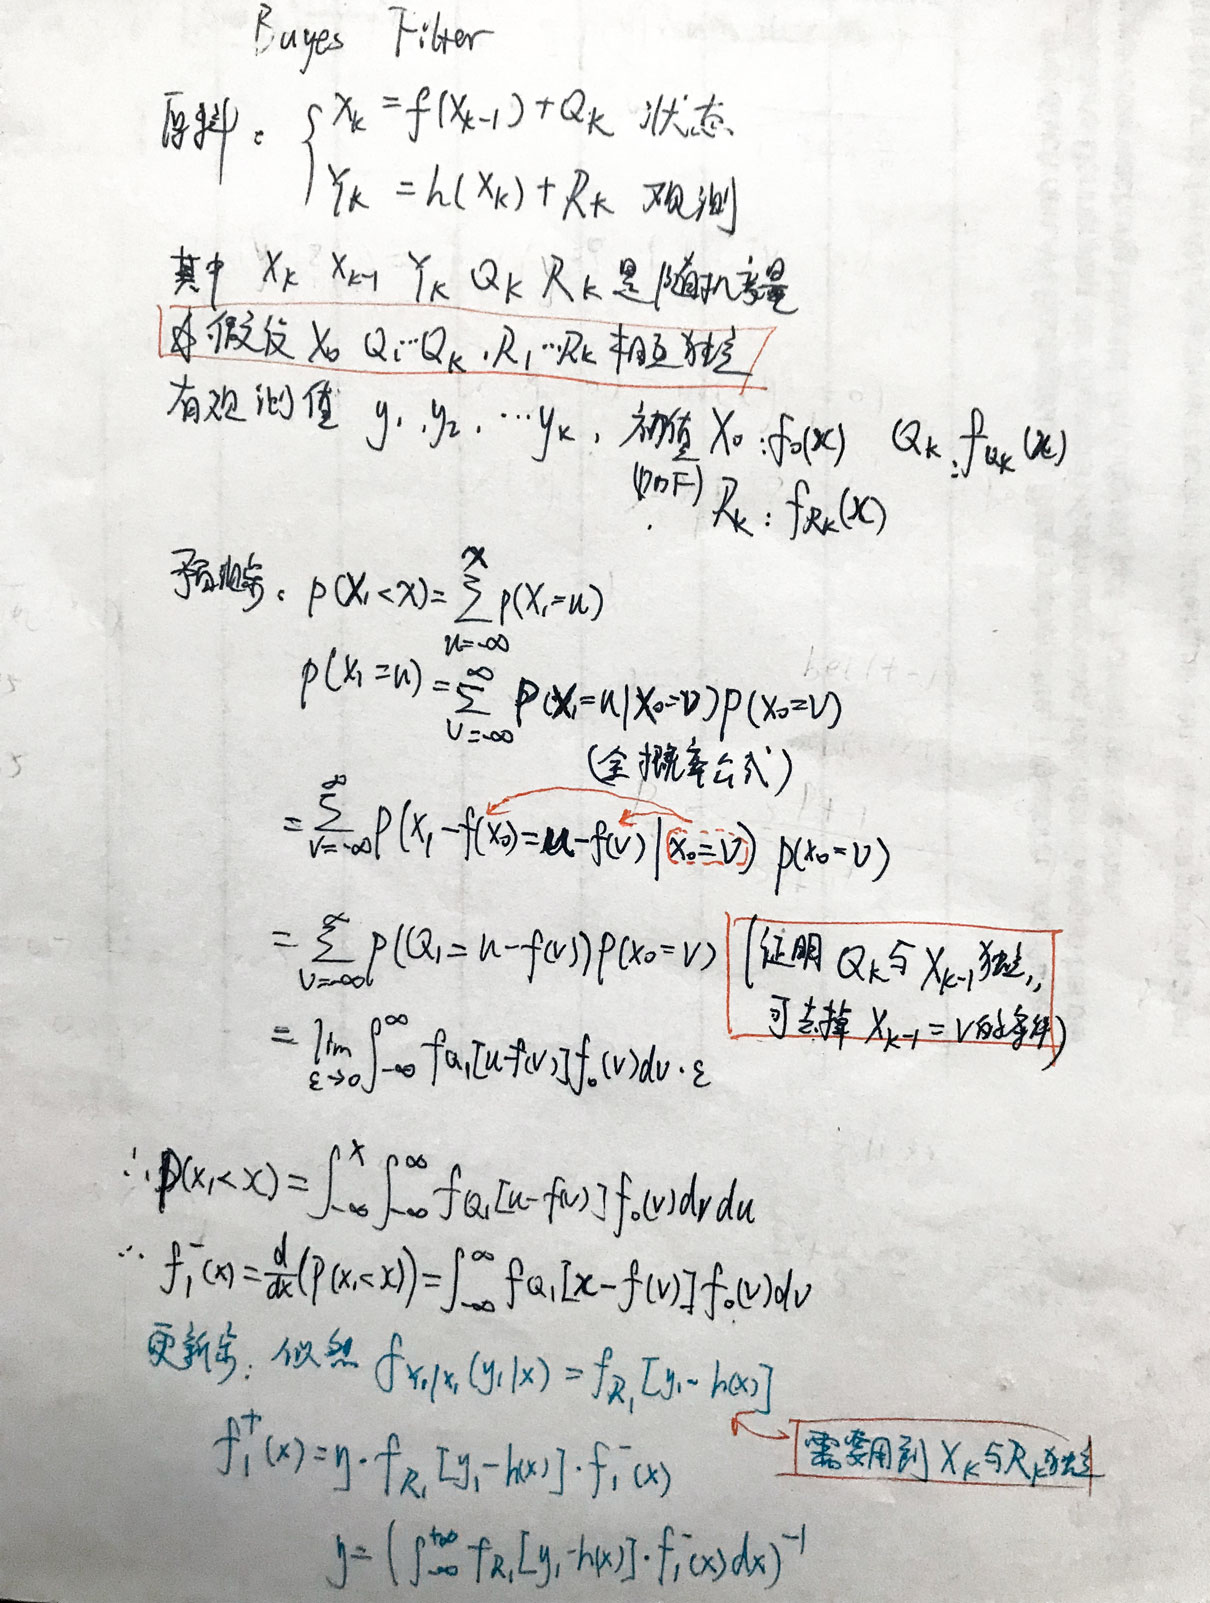 Bayes Filter
原料：{ X_k = f(X_{k-1}) + Q_k 状态
Y_k = h(X_k) + R_k 观测
其中 X_k X_{k-1} Y_k Q_k R_k 是随机变量
假设 X_0 Q_1…Q_k, R_1…R_k 相互独立
有观测值 y_1, y_2, …y_k, 初值 X_0: f_0(x) Q_k: f_{Q_k}(x)
(PDF) R_k: f_{R_k}(x)
预测步: p(X_1<x) = ∑_{u=-∞}^{x} p(X_1=u)
p(X_1=u) = ∑_{v=-∞}^{∞} p(X_1=u|X_0=v)p(X_0=v)
(全概率公式)
= ∑_{v=-∞}^{∞} p(X_1-f(X_0)=u-f(v)|X_0=v) p(X_0=v)
= ∑_{v=-∞}^{∞} p(Q_1=u-f(v))p(X_0=v) (证明 Q_k与X_{k-1}独立,
可去掉 X_{k-1}=v的条件)
= lim_{ε→0} ∫_{-∞}^{∞} f_{Q_1}[u-f(v)]f_0(v)dv·ε
∴ p(X_1<x) = ∫_{-∞}^{x} ∫_{-∞}^{∞} f_{Q_1}[u-f(v)]f_0(v)dvdu
∴ f_1^-(x) = d/dx(p(X_1<x)) = ∫_{-∞}^{∞} f_{Q_1}[x-f(v)]f_0(v)dv
更新步: 似然 f_{Y_1|X_1}(y_1|x) = f_{R_1}[y_1-h(x)]
f_1^+(x) = η·f_{R_1}[y_1-h(x)]·f_1^-(x) 需要用到 X_k与R_k独立
η = (∫_{-∞}^{+∞} f_{R_1}[y_1-h(x)]·f_1^-(x)dx)^{-1}